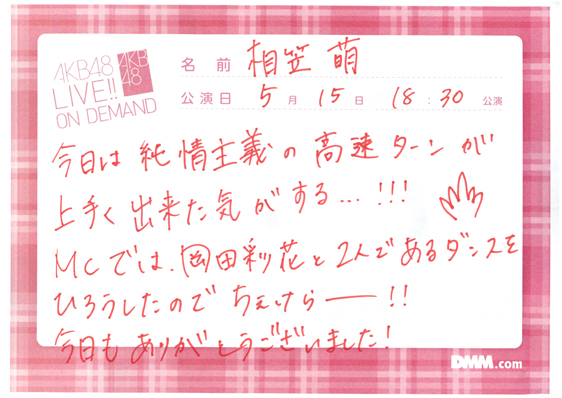 AKB48
LIVE!!
ON DEMAND
AKB
48
名前 相笠 萌
公演日 5月 15日 18:30 公演
今日は 純情主義の 高速ターンが
上手く 出来た気がする…!!!
MCでは、岡田彩花と2人であるダンスを
ひろうしたので ちぇけらー!!
今日も ありがとうございました!
DMM.com